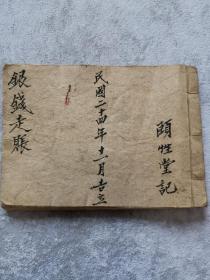 頤性堂記
民國二十四年十一月吉立
銀錢走賬